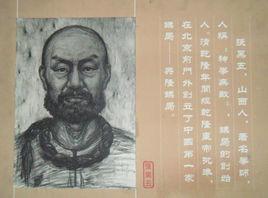 張黑五，山西人，著名拳師，
人稱：神拳無敵、鏢局的創始
人。清乾隆年間經乾隆皇帝批準，
在北京前門外創立了中國第一家
鏢局——興隆鏢局。
張黑五